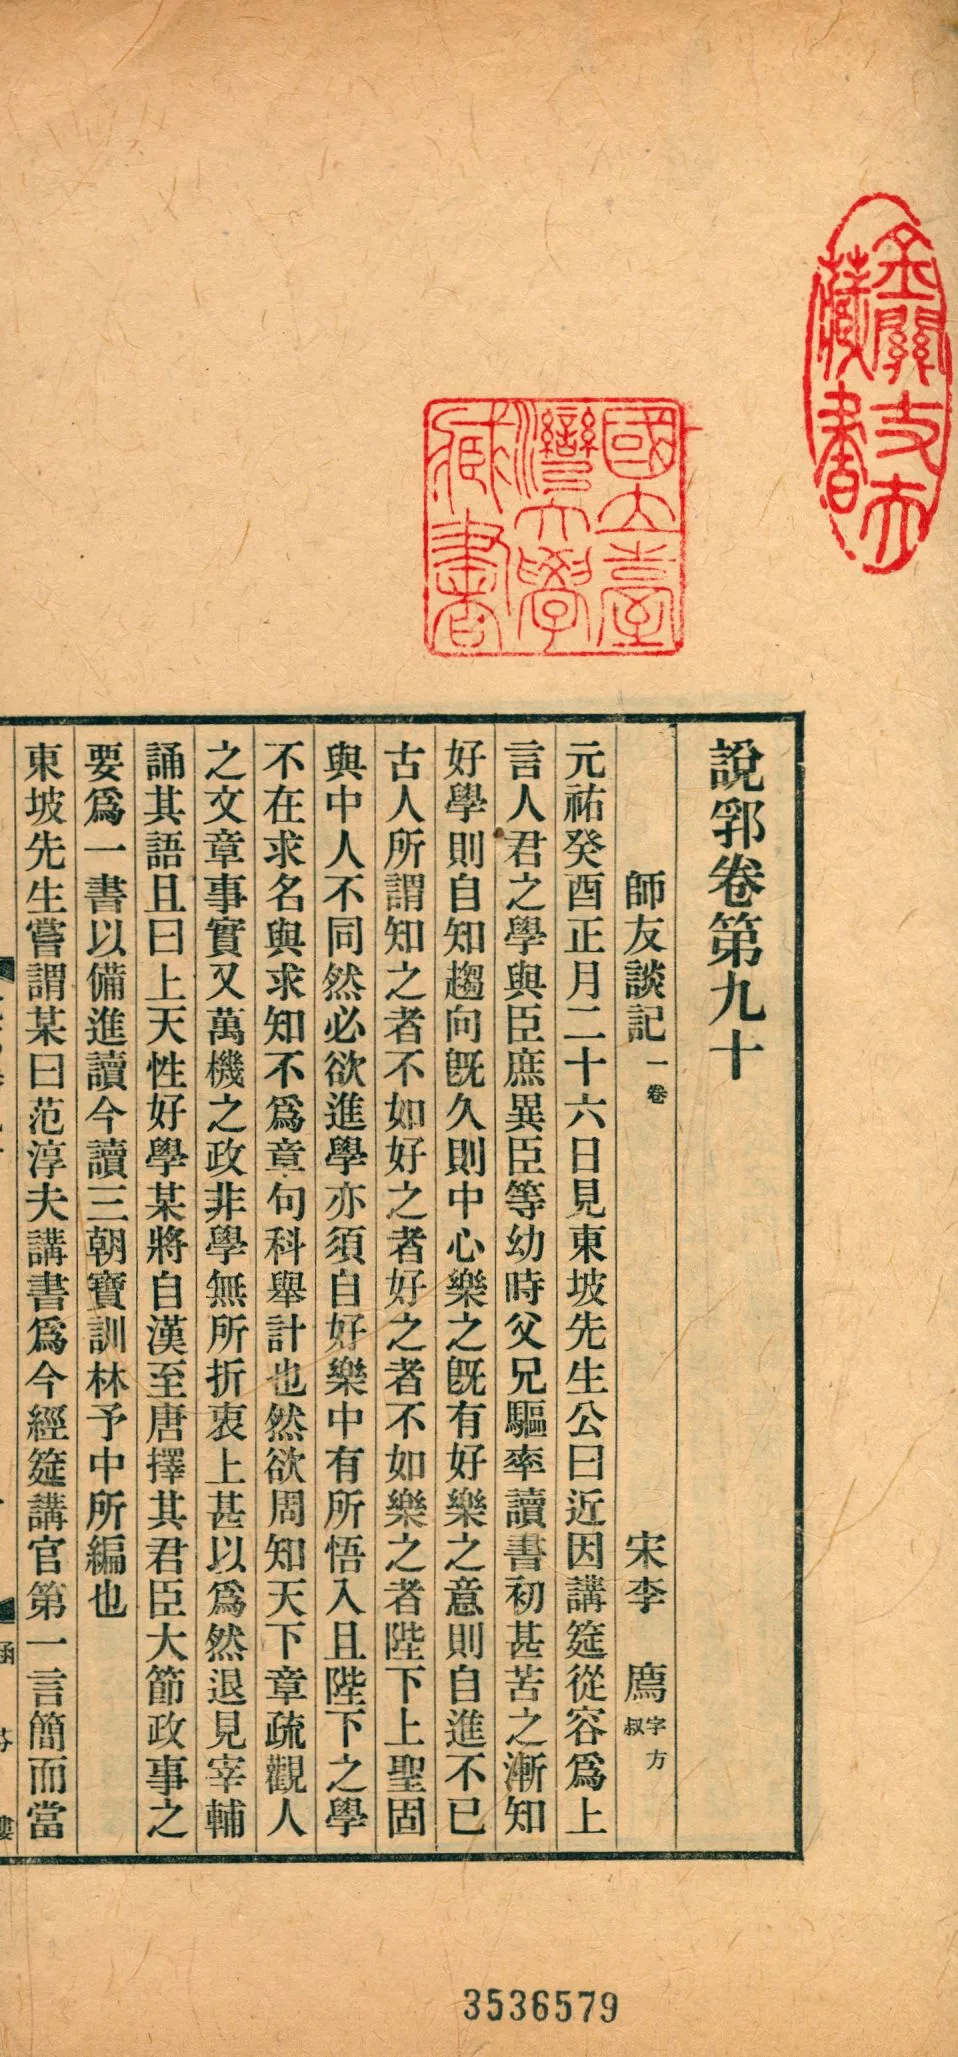 說郛卷第九十
師友談記一卷 宋李 廌字方叔
元祐癸酉正月二十六日見東坡先生公曰近因講筵從容爲上
言人君之學與臣庶異臣等幼時父兄驅率讀書初甚苦之漸知
好學則自知趨向旣久則中心樂之旣有好樂之意則自進不已
古人所謂知之者不如好之者好之者不如樂之者陛下上聖固
與中人不同然必欲進學亦須自好樂中有所悟入且陛下之學
不在求名與求知不爲章句科舉計也然欲周知天下章疏觀人
之文章事實又萬機之政非學無所折衷上甚以爲然退見宰輔
誦其語且曰上天性好學某將自漢至唐擇其君臣大節政事之
要爲一書以備進讀今讀三朝寶訓林予中所編也
東坡先生嘗謂某曰范淳夫講書爲今經筵講官第一言簡而當
國立臺
灣大學
藏書
藏書
3536579